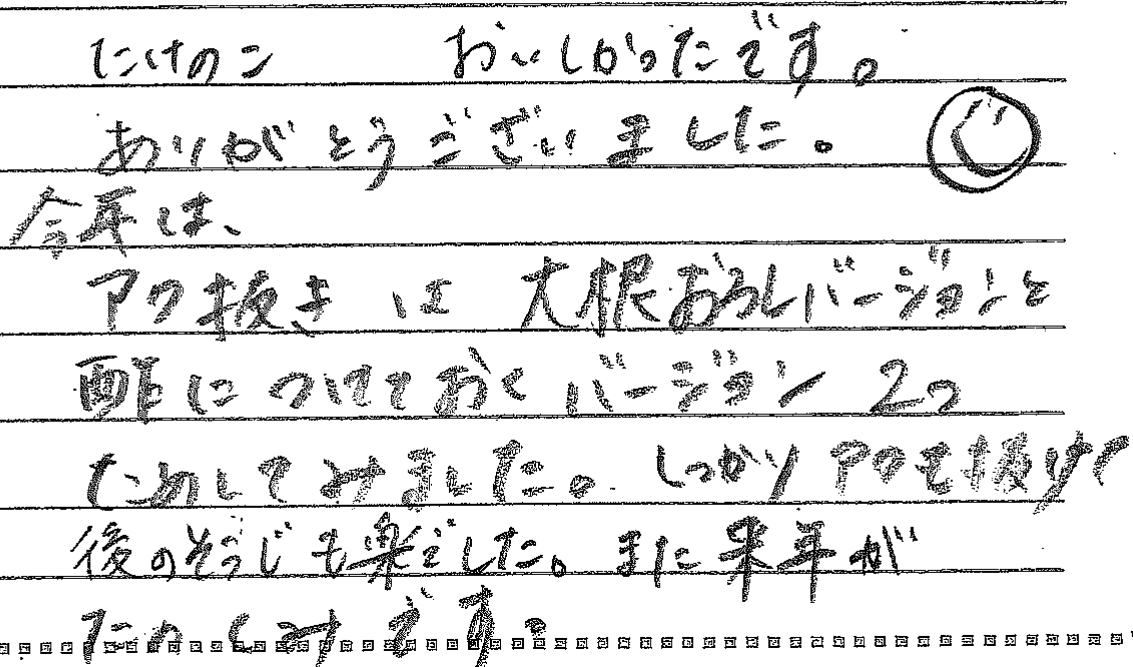 たけのこ おいしかったです。
ありがとうございました。
今年は、
アク抜きは大根おろしバージョンと
酢につけておくバージョン2つ
ためしてみました。しっかりアクも抜けて
後のそうじも楽でした。また来年が
たのしみです。